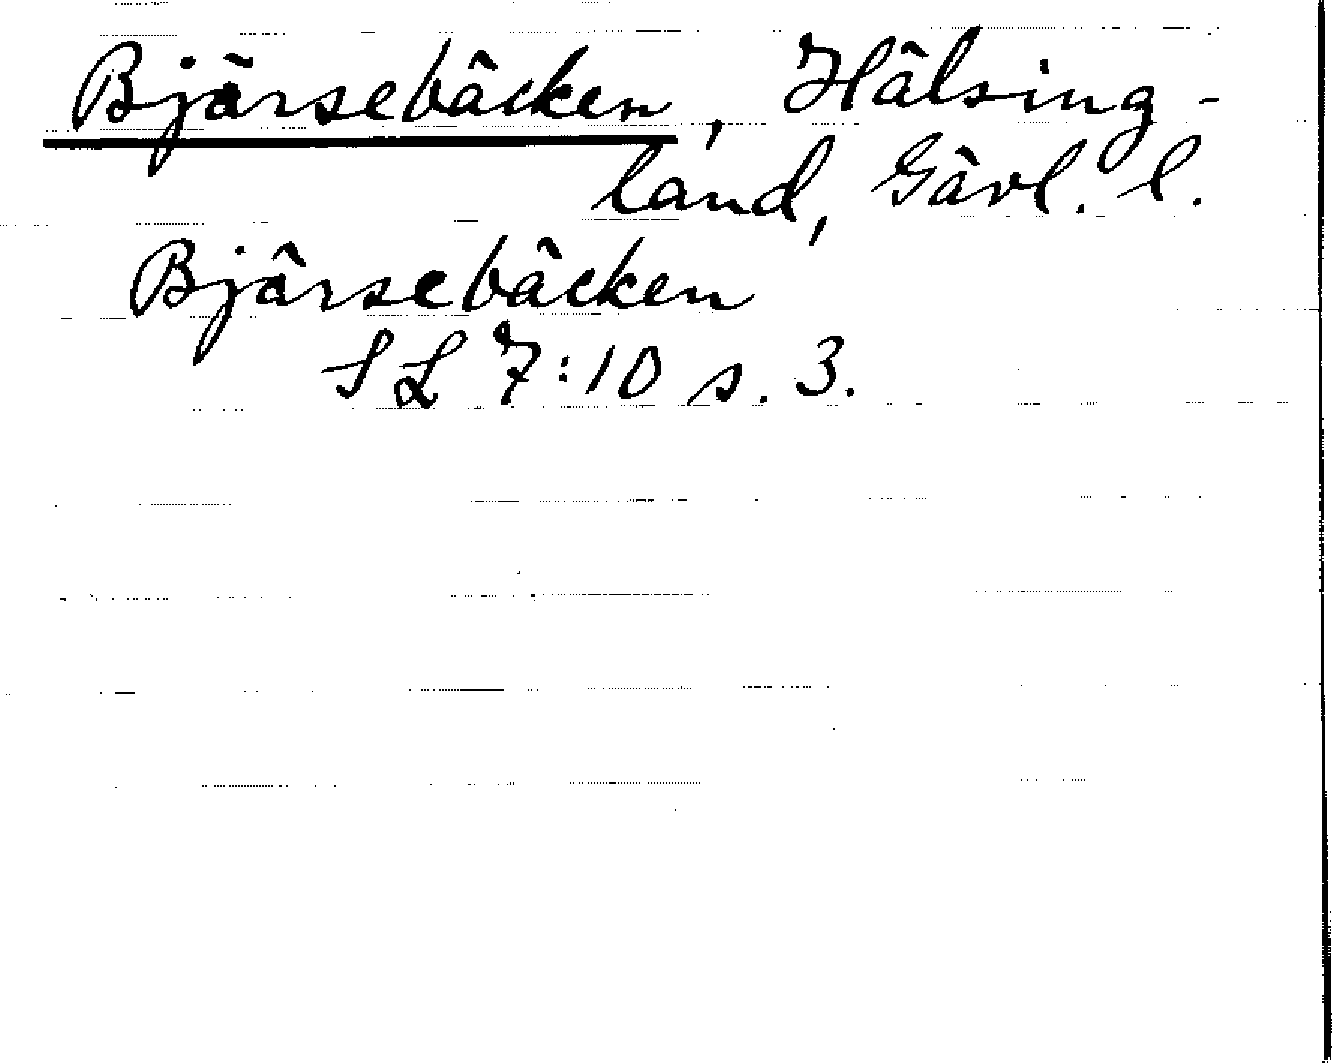 Bjärsebäcken, Hälsing-
land, Gävl. l.
Bjärsebäcken
SL 7:10 s. 3.